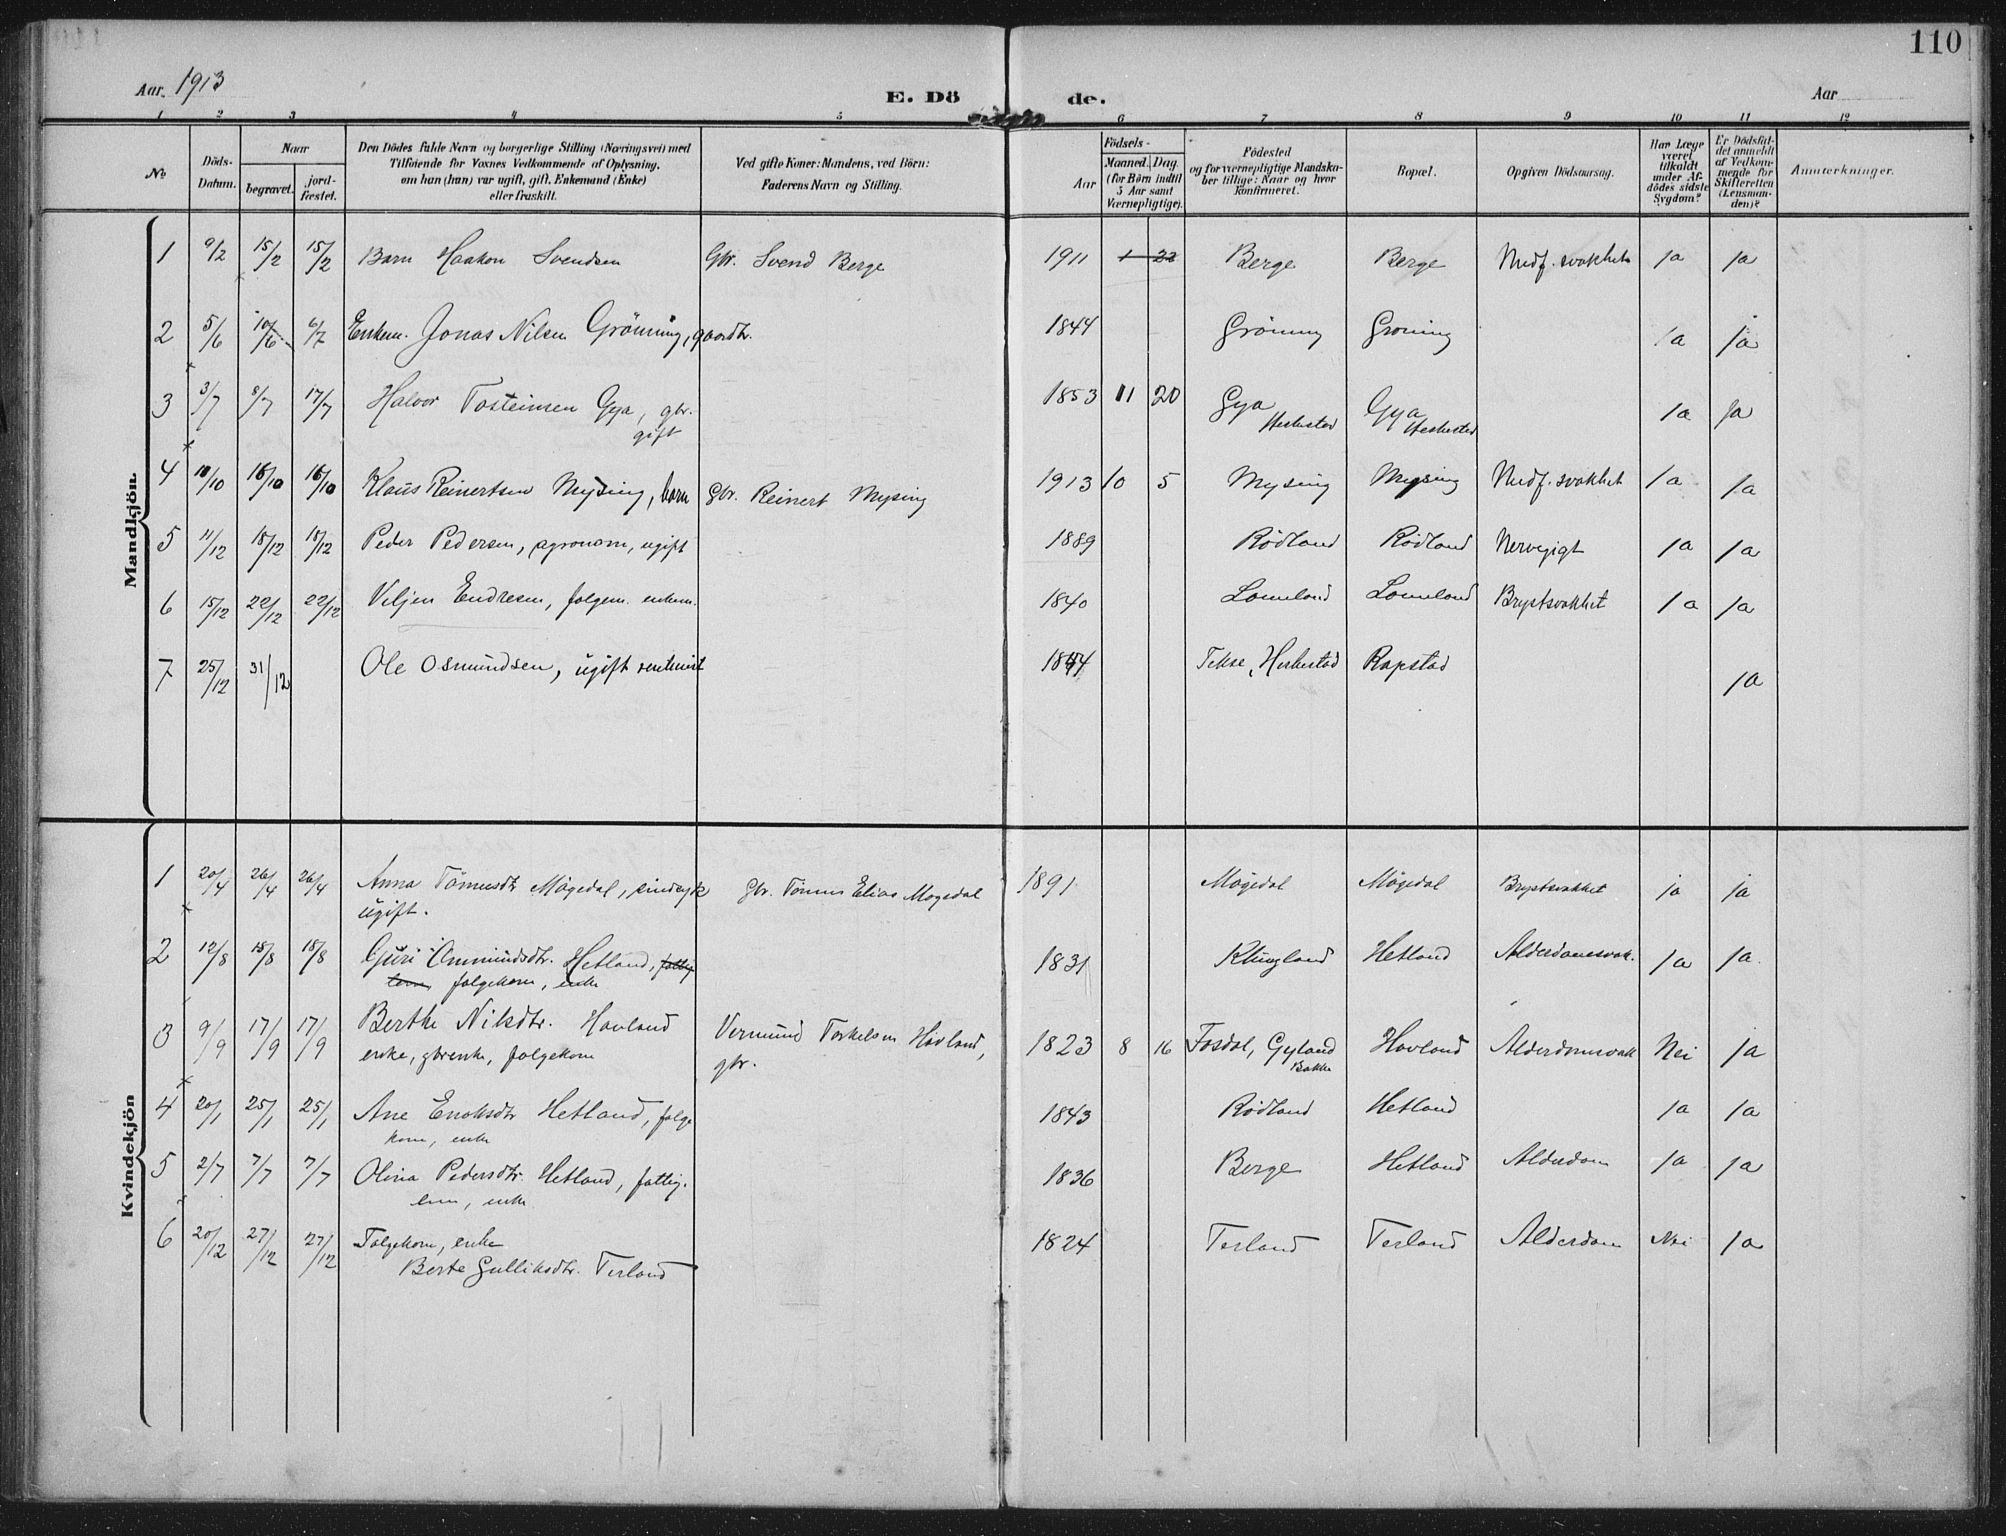 110
Aar. 1913
E. Dö de.
Aar
1 2 3 4 5 6 7 8 9 10 11 12
No
Döds-Datum.
Naar
begravet.
jord-fæstet.
Den Dödes fulde Navn og borgerlige Stilling (Næringsvei) med
Tilföiende for Voxnes Vedkommende af Oplysning,
om han (hun) var ugift, gift, Enkemand (Enke)
eller fraskilt.
Ved gifte Koner: Mandens, ved Börn:
Faderens Navn og Stilling.
Födsels-
Aar
Maaned. Dag.
(for Börn indtil
5 Aar samt
Værnepligtige).
Födested
og for værnepligtige Mandska-
ber tillige: Naar og hvor
konfirmeret.
Bopæl.
Opgiven Dödsaarsag.
Har Læge
været
tilkaldt
under Af-
dödes sidste
Sygdom?
Er Dödsfal-
det anmeldt
af Vedkom-
mende for
Skifteretten
(Lensman-
den)?
Anmærkninger.
Mandkjön.
1 9/2 15/2 15/2 Barn Haakon Svendsen Gbr. Svend Berge 1911 1 22 Berge Berge Medf. svakhet ja ja
2 5/6 10/6 6/7 Enkem. Jonas Nilsen Gröning, gaardbr. 1844 Gröning Groning ja ja
3 3/7 8/7 17/7 Halvor Tosteinsen Gya, gbr. 1853 11 20 Gya Gya ja ja
gift Heskestad Heskestad
4 10/10 16/10 16/10 Klaus Reinertsen Mysing, barn Gbr. Reinert Mysing 1913 10 5 Mysing Mysing Medf. svakhet ja ja
5 11/12 18/12 18/12 Peder Pedersen, agronom, ugift 1889 Rödland Rödland Nervegigt ja ja
6 15/12 22/12 22/12 Veljen Endresen, folgem. enkem. 1840 Lomeland Lomeland Brystsvakhet ja ja
7 25/12 31/12 Ole Osmundsen, ugift rentenist 1844 Tekse, Heskestad Rapstad ja
Kvindekjön
1 20/4 26/4 26/4 Anna Tönnesdtr Mögedal, sindsyk Gbr. Tönnes Elias Mogedal 1891 Mögedal Mögedal Brystsvakhet ja ja
ugift.
2 12/8 18/8 18/8 Guri Ommundsdtr. Hetland, fattig- 1831 Klungland Hetland Alderdomssvak. ja ja
lem, folgekone, enke
3 9/9 17/9 17/9 Berthe Nilsdtr. Hovland Vermund Torkelsen Hovland, 1823 8 16 Fosdal, Gyland Hovland Alderdomssvak Nei ja
enke, gbrenke, folgekone gbr. Bakke
4 20/1 25/1 25/1 Ane Enoksdtr Hetland, folge 1843 Rödland Hetland ja ja
kone, enke
5 2/7 7/7 7/7 Olina Pedersdtr. Hetland, fattig- 1836 Berge Hetland Alderdom ja ja
lem, enke
6 20/12 27/12 27/12 Folgekone, enke 1824 Terland Terland Alderdom Nei ja
Berte Gulliksdtr. Terland